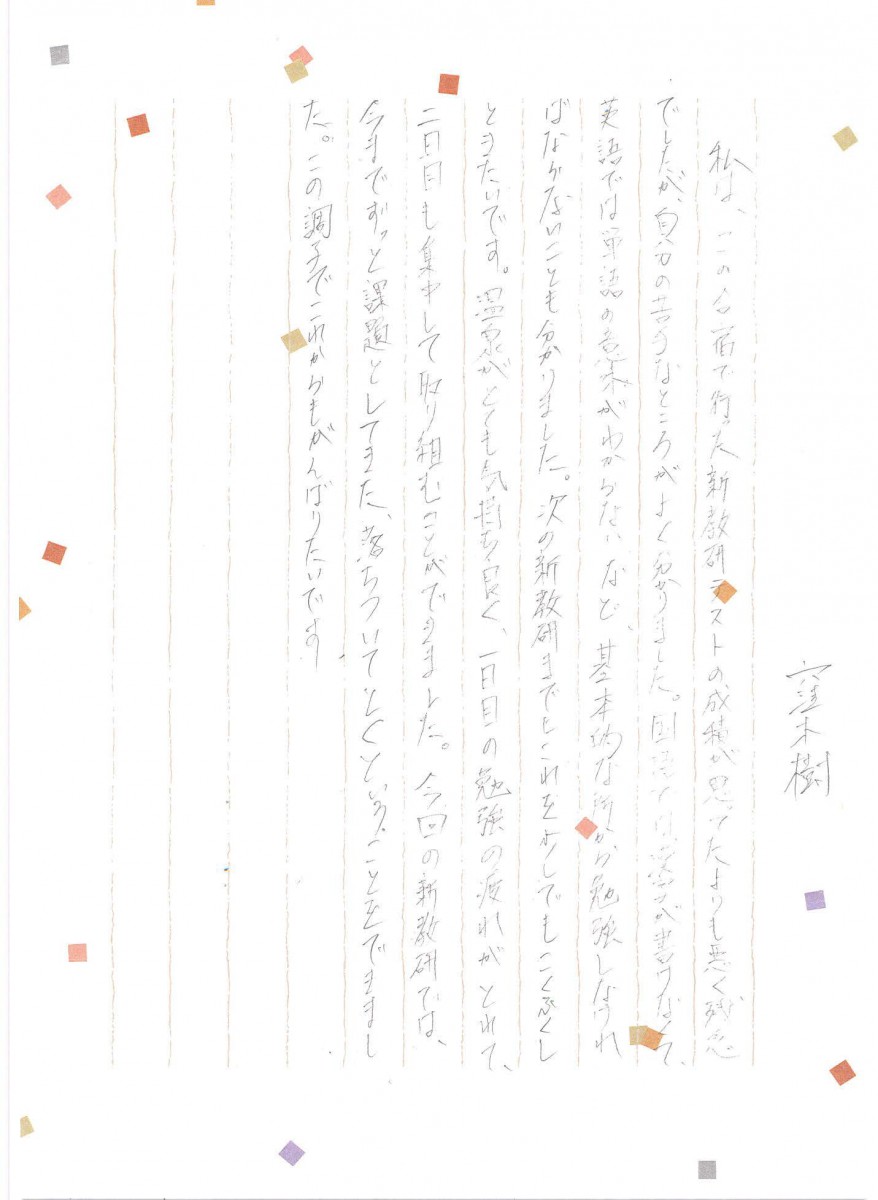 窪木樹
私は、この合宿で行った新教研テストの成績が思ってたよりも悪く残念
でしたが、自分の苦手なところがよく分かりました。国語では漢字が書けなくて、
英語では単語の意味がわからないなど、基本的な所から勉強しなけれ
ばならないことも分かりました。次の新教研までにこれを少しでもこくふくし
ときたいです。温泉がとても気持ち良く、一日目の勉強の疲れがとれて、
二日目も集中して取り組むのことができました。今回の新教研では、
今までずッと課題としてきた、落ちついてとくという、ことをできまし
た。この調子でこれからもがんばりたいです